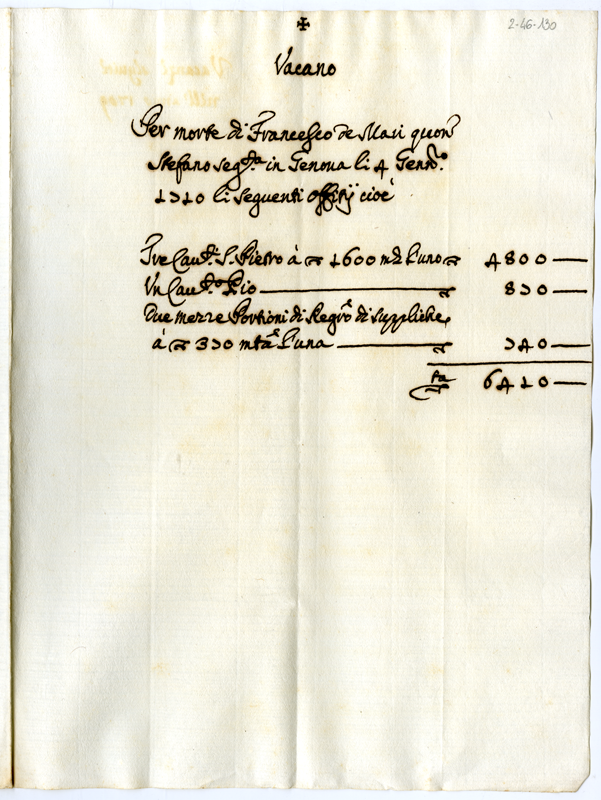 ✠
2-46-130
Vacano
Per morte di Francesco de Mari quon
Stefano seg.ta in Genova li 4 Genn.o
1710 li seguenti offitij cioè
Tre Cau.ti S. Pietro à 1600 mta l'uno 4800
Un Cau.to Pio 870
Due mezze Portioni di Regro di suppliche,
à 370 mta l'una 740
6410